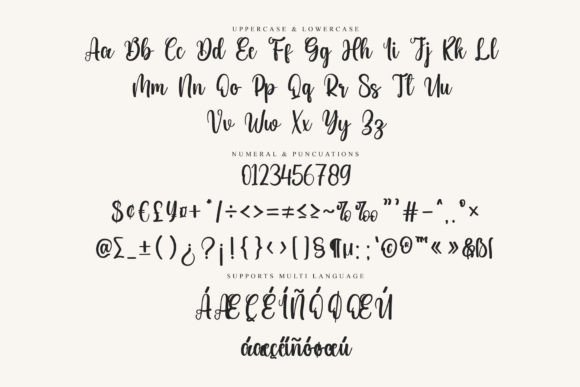 UPPERCASE & LOWERCASE
Aa Bb Cc Dd Ee Ff Gg Hh Ii Jj Kk Ll
Mm Nn Oo Pp Qq Rr Ss Tt Uu
Vv Ww Xx Yy Zz
NUMERAL & PUNCUATIONS
0123456789
$¢€£¥¤+*/÷<>=≠≤≥~‰"'#-^,.°×
@∑_±()¿?¡!{}‹›[]§¶µ:;'©®™«»&ß
SUPPORTS MULTI LANGUAGE
ÁÆÇÉÍÑÓØŒÚ
áæçéíñóøœú